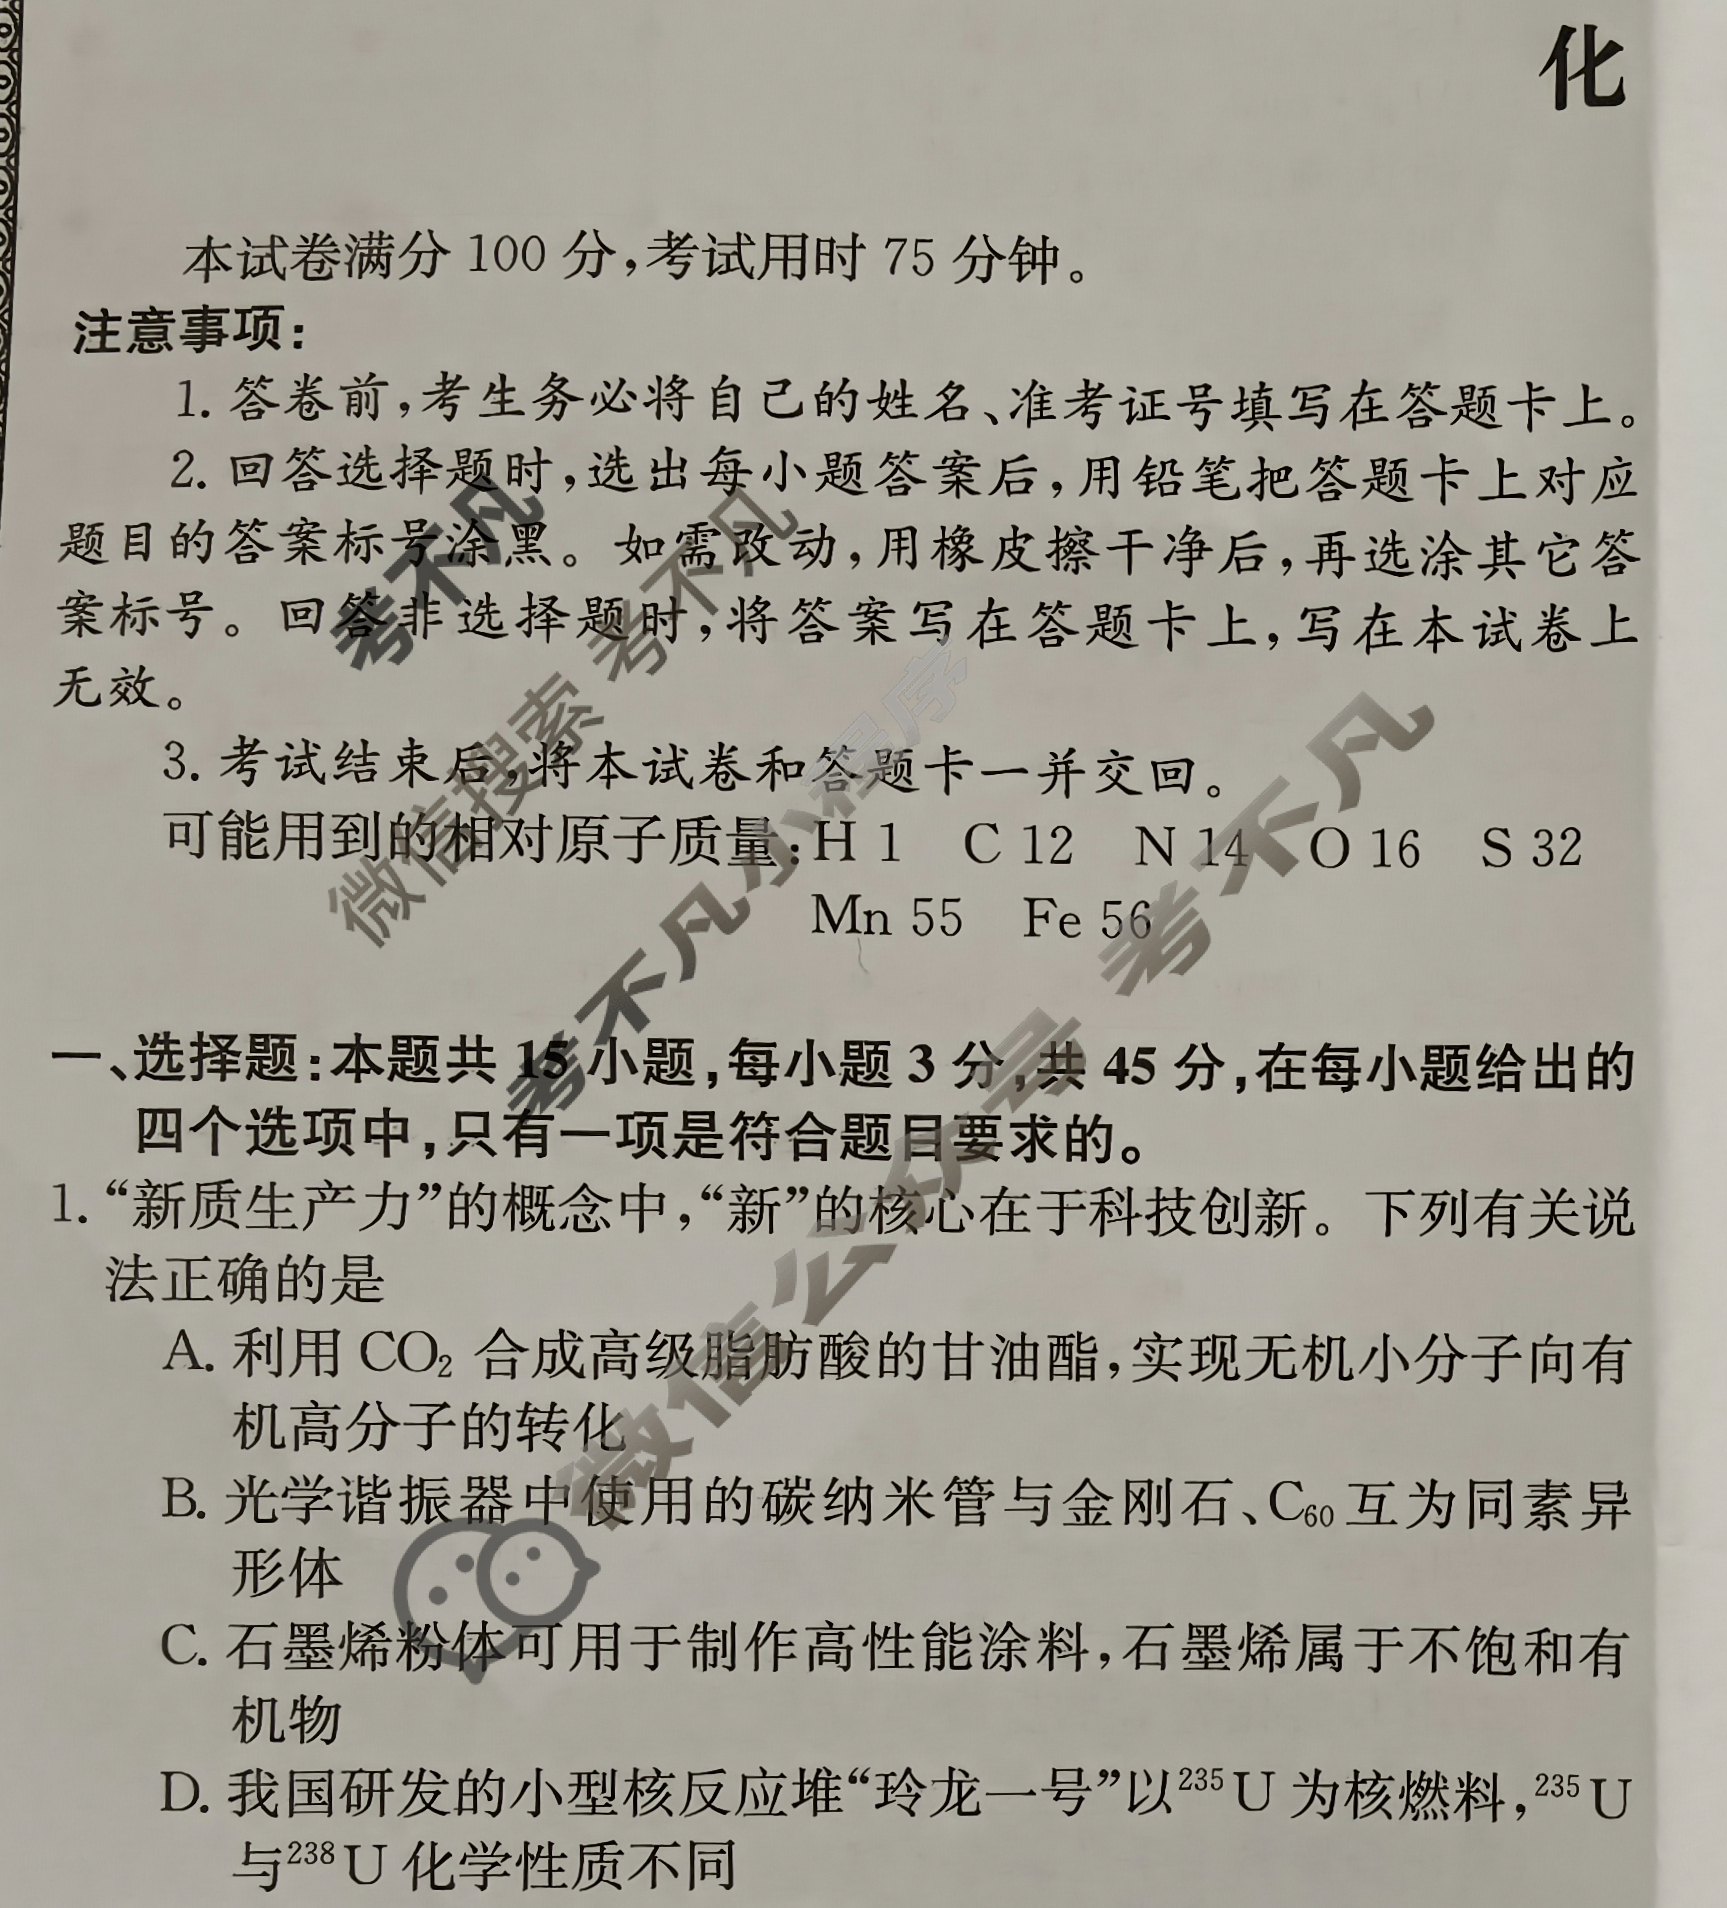 化
本试卷满分 100 分,考试用时 75 分钟。
注意事项:
1. 答卷前,考生务必将自己的姓名、准考证号填写在答题卡上。
2. 回答选择题时,选出每小题答案后,用铅笔把答题卡上对应
题目的答案标号涂黑。如需改动,用橡皮擦干净后,再选涂其它答
案标号。回答非选择题时,将答案写在答题卡上,写在本试卷上
无效。
3. 考试结束后,将本试卷和答题卡一并交回。
可能用到的相对原子质量:H 1 C 12 N 14 O 16 S 32
Mn 55 Fe 56
一、选择题:本题共 15 小题,每小题 3 分,共 45 分,在每小题给出的
四个选项中,只有一项是符合题目要求的。
1. “新质生产力”的概念中,“新”的核心在于科技创新。下列有关说
法正确的是
A. 利用 CO₂ 合成高级脂肪酸的甘油酯,实现无机小分子向有
机高分子的转化
B. 光学谐振器中使用的碳纳米管与金刚石、C₆₀ 互为同素异
形体
C. 石墨烯粉体可用于制作高性能涂料,石墨烯属于不饱和有
机物
D. 我国研发的小型核反应堆“玲龙一号”以²³⁵U 为核燃料,²³⁵U
与²³⁸U 化学性质不同
考不凡
微信搜索 考不凡
考不凡小程序
微信公众号 考不凡